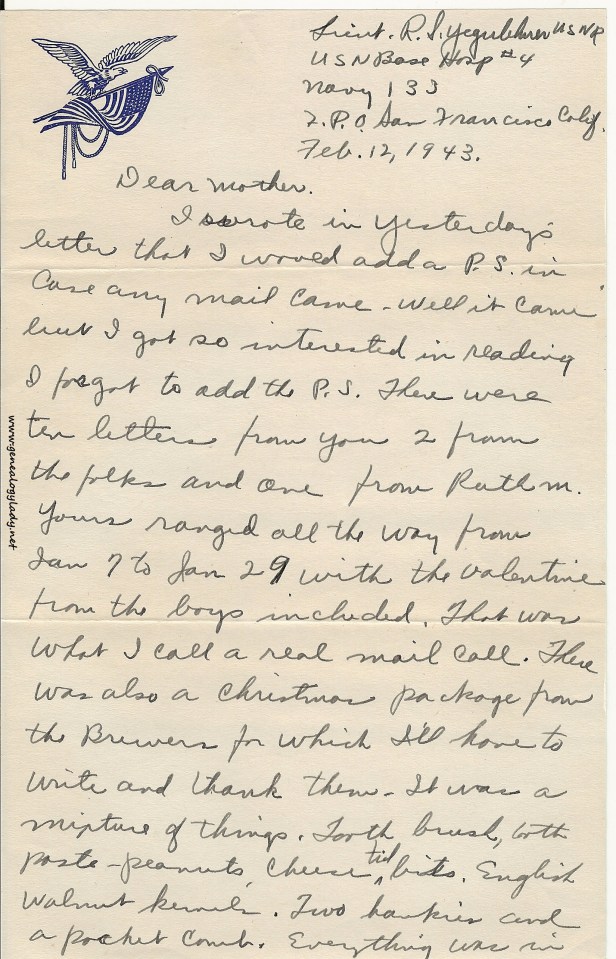 Lieut. R. S. Yegerlehner USNR
USN Base Hosp #4
Navy 133
F.P.O. San Francisco Calif.
Feb. 12, 1943.
Dear Mother.
I wrote in yesterday's
letter that I would add a P.S. in
case any mail came - Well it came
but I got so interested in reading
I forgot to add the P.S. There were
ten letters from you 2 from
the folks and one from Ruth M.
Yours ranged all the way from
Jan 7 to Jan 29 with the valentine
from the boys included. That was
what I call a real mail call. There
was also a Christmas package from
the Brewers for which I'll have to
write and thank them - It was a
mixture of things. Tooth brush, tooth
paste - peanuts, cheese tid bits. English
Walnut kernels. Two hankies and
a pocket comb. Everything was in
www.genealogylady.net